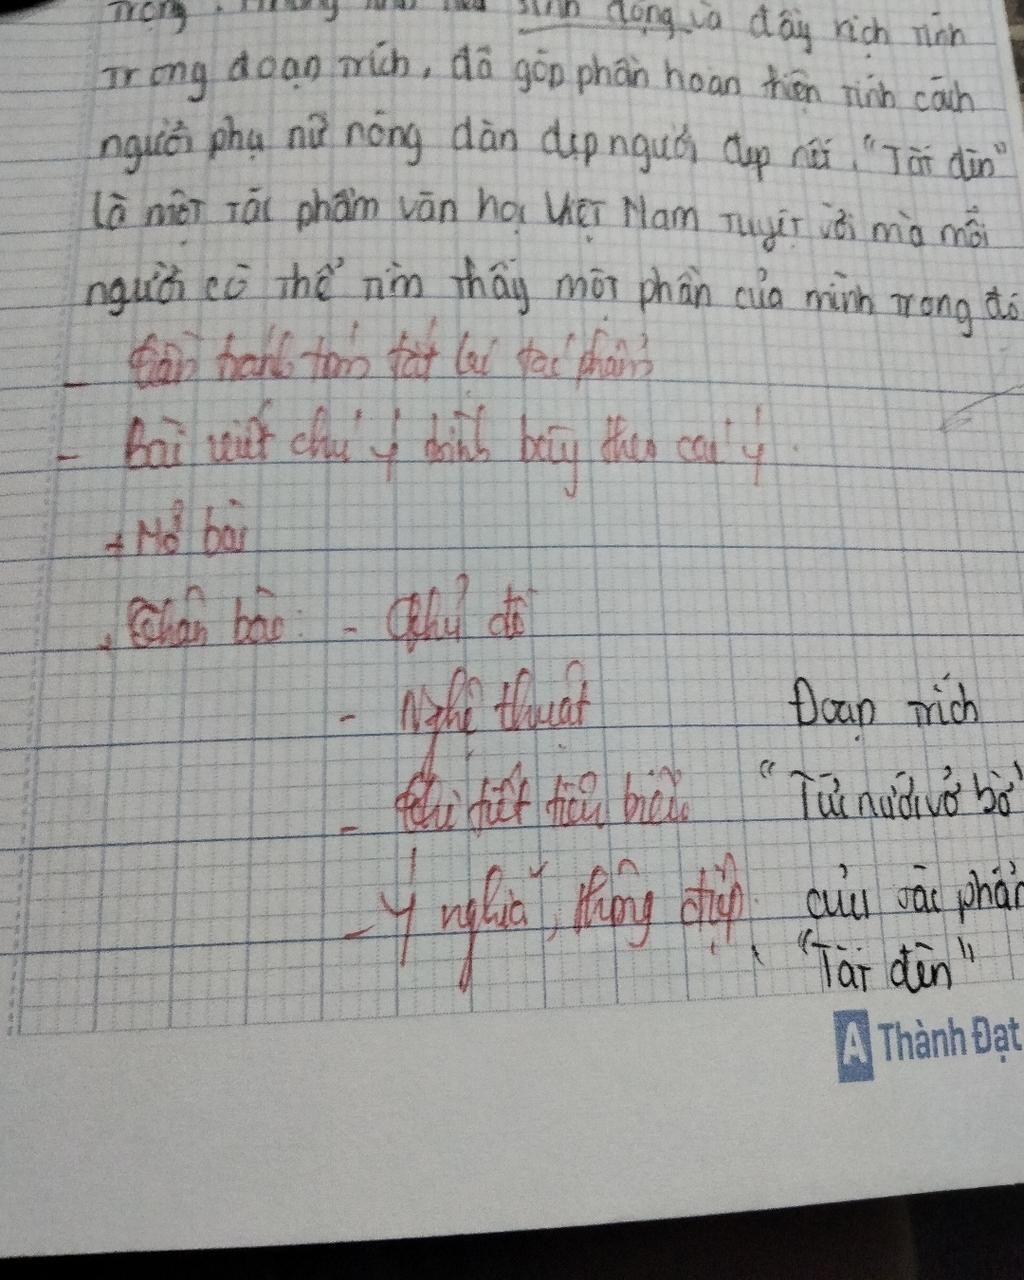 sinh động và đầy kịch tính
trong đoạn trích, đã góp phần hoàn thiện tính cách
người phụ nữ nông dân đẹp người đẹp nết. "Tắt đèn"
là một tác phẩm văn học Việt Nam tuyệt vời mà mỗi
người có thể tìm thấy một phần của mình trong đó
- tránh tóm tắt lại tác phẩm
- Bài viết chú ý trình bày theo các ý.
+ Mở bài
+ Thân bài: - Chủ đề
- Nghệ thuật
- Chi tiết tiêu biểu
- Ý nghĩa, thông điệp.
Đoạn trích
"Tức nước vỡ bờ"
của tác phẩm
"Tắt đèn"
Thành Đạt